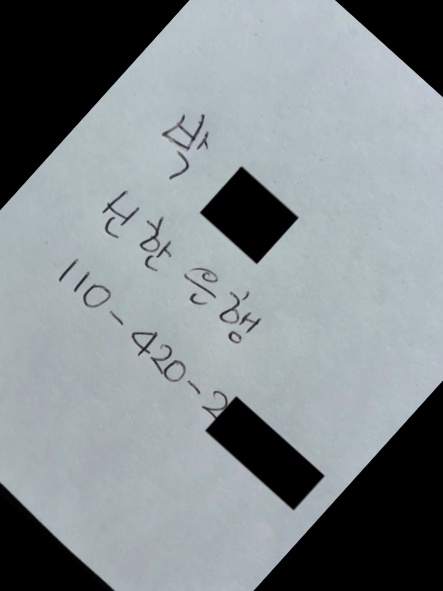 박
신한은행
110-420-2